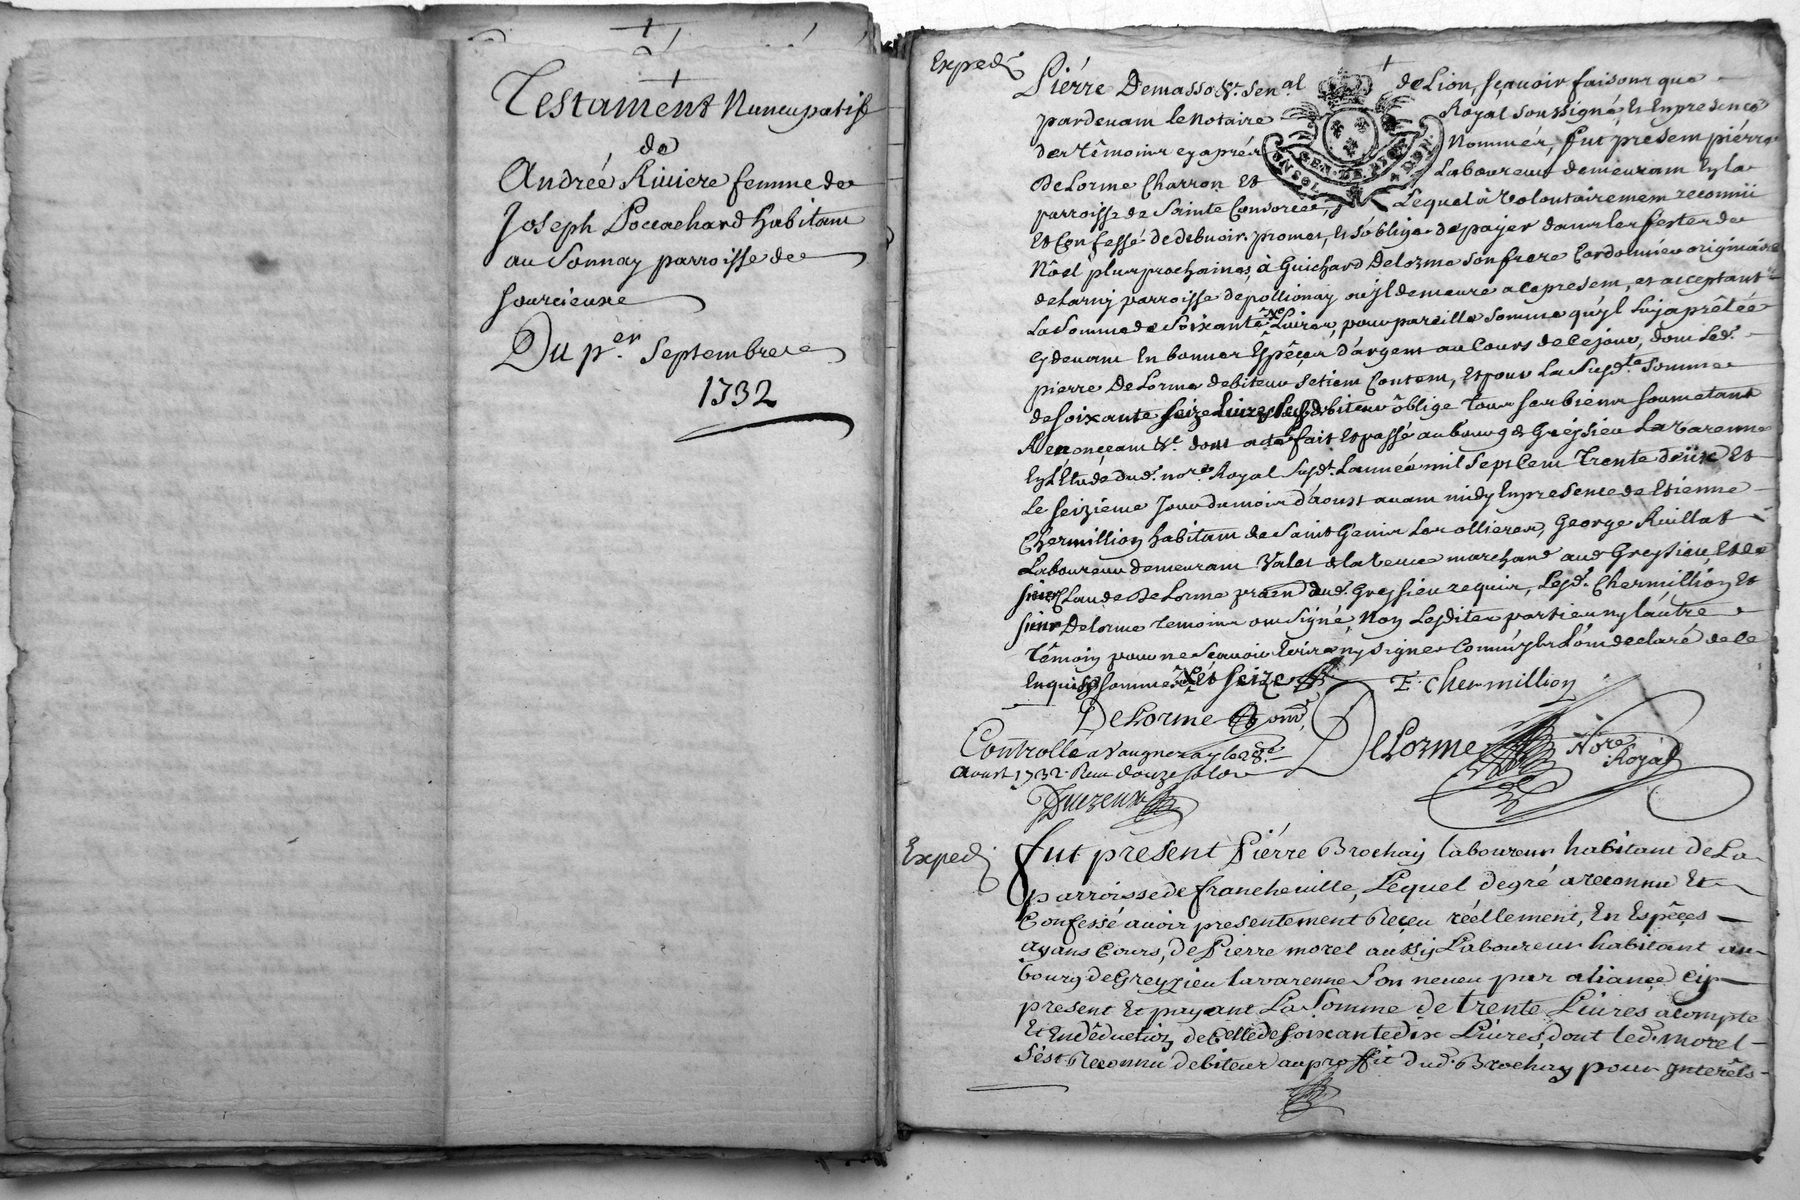 Testament Nuncupatif
de
Andrée Riviere femme de
Joseph Poccachard habitant
au Sonnay parroisse de
sourcieuxe
Du p.er Septembre
1732
Expedié
Pierre Demasso &c. Sen.al de Lion, sçavoir faisons que
pardevant le Notaire Royal soussigné, Et En presence
des têmoins cy après Nommés, fut present pierre
DeLorme Charron Et Laboureur demeurant En la
parroisse de Sainte Consorce, Lequel à volontairement reconnü
Et Confessé de debvoir, promet, Et s'oblige de payer dans les festes de
Nôel plus prochaines, à Guichard Delorme son frere Cordonnier originaire
de Larny parroisse de pollionay ou il demeure a le present, et acceptant
La Somme de Soixante Livres, pour pareille Somme qu'il luy a prêtée
cy devant En bonnes Espêçes d'argent au Cours de Ce jour, dont led.
pierre DeLorme debiteur Se tient Content, Et pour La Susd.te Somme
de soixante seize Livres led. debiteur ôblige tous ses biens soumetant
Renonçeant &c. dont acte fait Et passé au bourg de Greysieu La varenne
En L'Etude dud. no.re Royal Susd. L'année mil Sept Cent Trente deüx Et
Le seizieme Jour du mois d'aoust avant midy En presence de Etienne
Chermillion habitant de Saint Genis Les ollieres, George Ruillat
Laboureur demeurant Valet de la veuve marchand aud. Greysieu, Et de
sieur Claude DeLorme pra.en dud. Greysieu requis, Lesd. Chermillion Et
sieur Delorme temoins ont Signé, Non Lesdites parties ny l'autre
Têmoin pour ne Sçavoir Ecrire ny signer Comm'ils L'ont declaré de ce
Enquis Et sommés Et seize
E. Chermillion
DeLorme
Controllé a Vaugneray le 28.e
Aoust 1732. Receu douze sols
DeLorme No.re Royal
Duzeux
Expedié
fut present Pierre Brochay laboureur habitant de La
parroisse de francheville, Lequel de gré a reconnu Et
Confessé avoir presentement Reçeu réellement, En Espêçes
ayans Cours, de Pierre morel aussy Laboureur habitant au
bourg de Greyzieu lavarenne Son neveu par aliance cy
present Et payant La Somme de trente Livres, acompte
Et En dêduction de Celle de soixante dix Livres, dont led. morel
s'est Reconnu debiteur au proffit dud. Brochay pour interêts